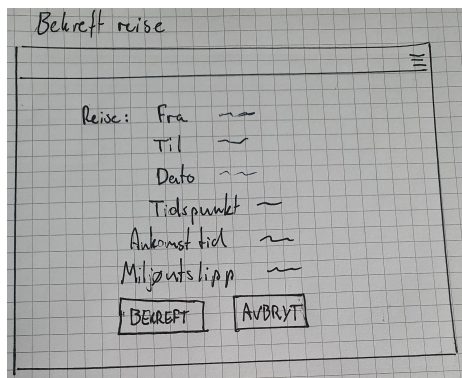 Bekreft reise
Reise: Fra
Til
Dato
Tidspunkt
Ankomst tid
Miljøutslipp
BEKREFT AVBRYT